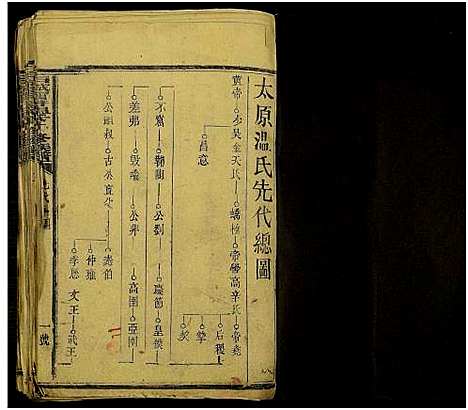 太原温氏先代總圖
黄帝 少昊金天氏 蟜極 帝嚳高辛氏 帝堯
昌意
后稷
摯
契
不窋 鞠陶 公劉 慶節 皇僕
差弗 毀隃 公非 高圉 亞圉
公祖叔 古公亶父
泰伯
仲雍
季歷 文王 武王
一號